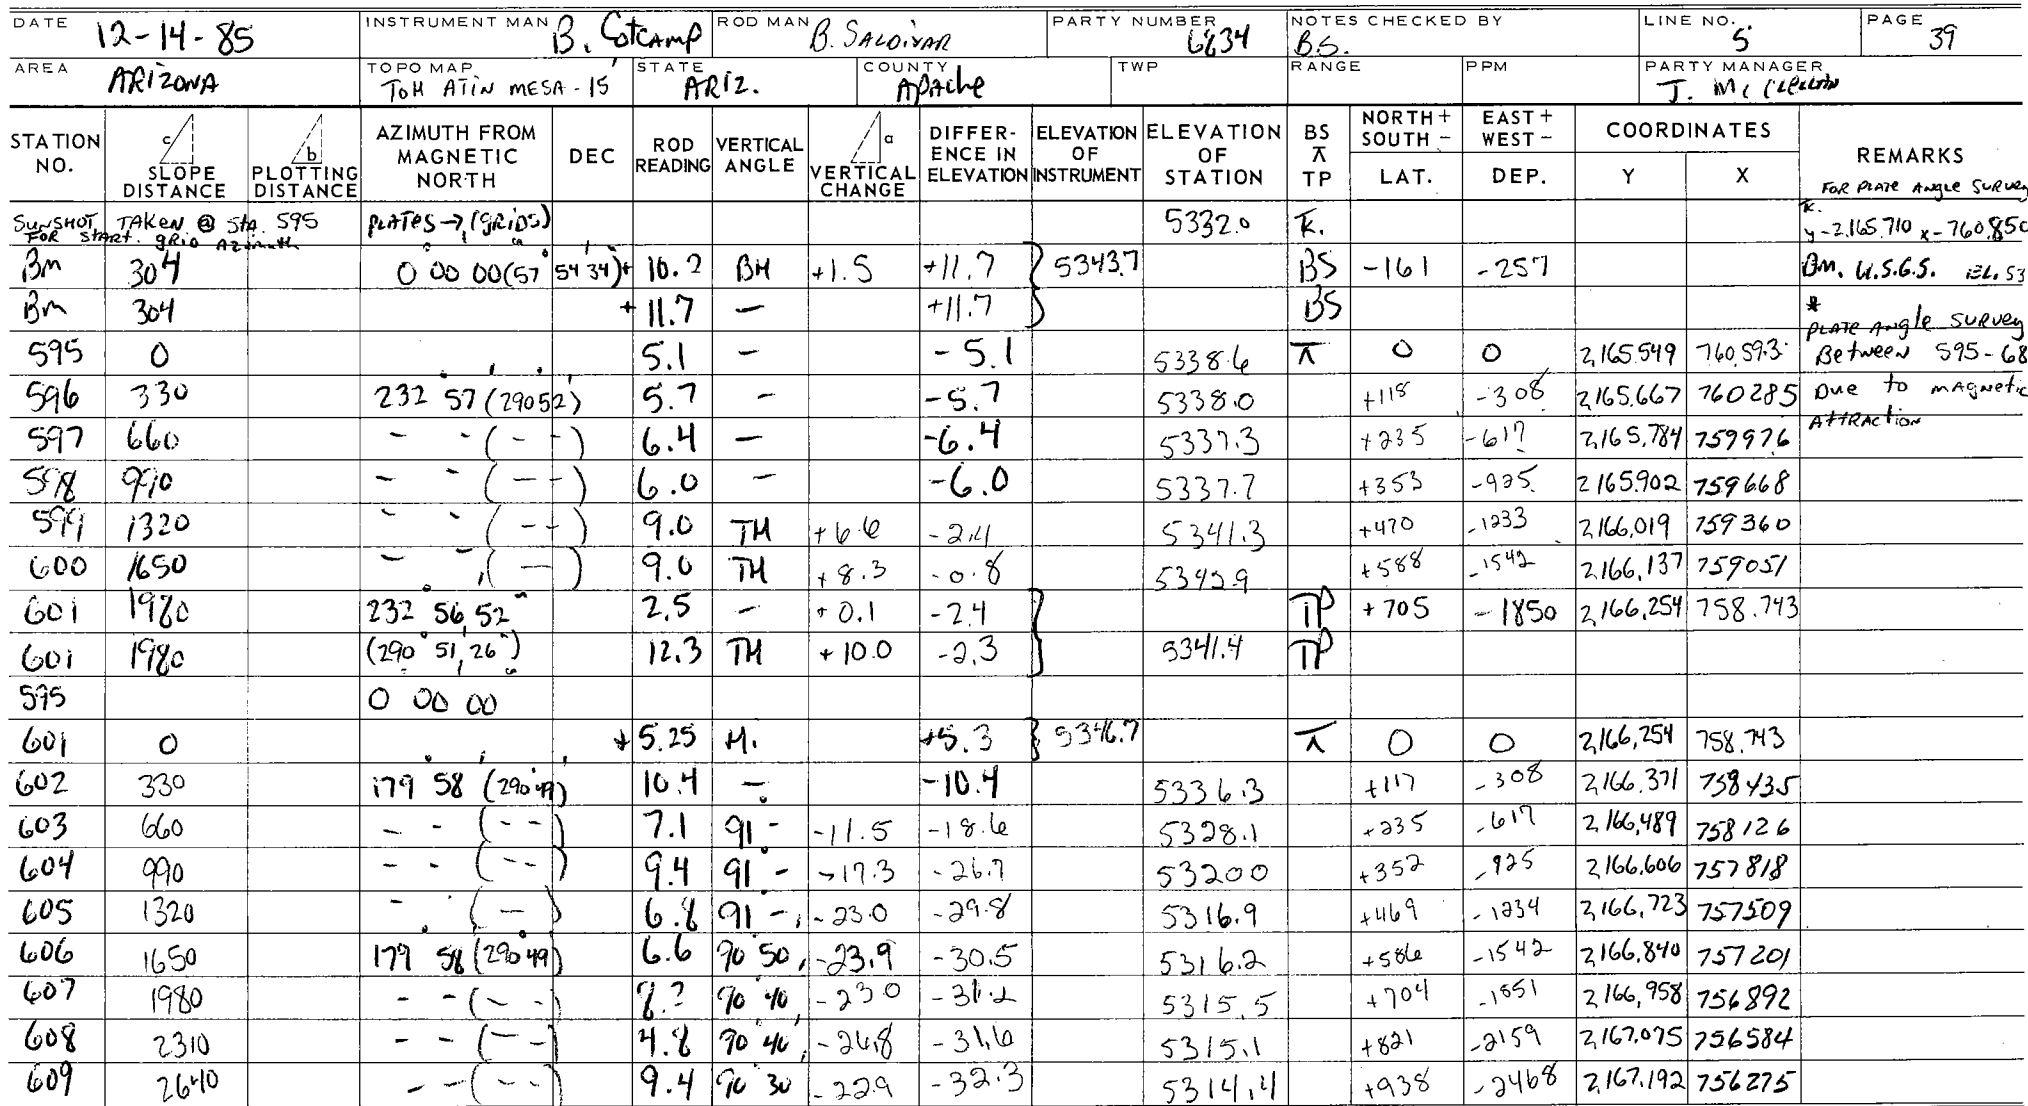 DATE 12-14-85 INSTRUMENT MAN B. Cotcamp ROD MAN B. SALDIVAR PARTY NUMBER 6634 NOTES CHECKED BY B.S. LINE NO. 5 PAGE 39
AREA ARIZONA TOPO MAP TOH ATIN MESA - 15' STATE ARIZ. COUNTY Apache TWP RANGE PPM PARTY MANAGER J. McClellan
STATION NO. c SLOPE DISTANCE b PLOTTING DISTANCE AZIMUTH FROM MAGNETIC NORTH DEC ROD READING VERTICAL ANGLE a VERTICAL CHANGE DIFFER-ENCE IN ELEVATION ELEVATION OF INSTRUMENT ELEVATION OF STATION BS ⊼ TP NORTH + SOUTH - LAT. EAST + WEST - DEP. COORDINATES Y X REMARKS FOR PLATE ANGLE SURVEY
SUNSHOT TAKEN @ Sta. 595 FOR START. GRID Azimuth PLATES → (GRIDS) 5332.0 ⊼. y-2,165,710 x-760,850
Bm 304 0 00 00 (57° 54' 34) + 10.2 BH +1.5 +11.7 } 5343.7 BS -161 -257 Bm. U.S.G.S. EL. 53
Bm 304 + 11.7 - +11.7 BS * PLATE Angle SURVEY
595 0 5.1 - -5.1 5338.6 ⊼ 0 0 2,165.549 760.593 Between 595-68
596 330 232° 57' (290 52) 5.7 - -5.7 5338.0 +118 -308 2,165.667 760285 Due to magnetic
597 660 - - (- -) 6.4 - -6.4 5337.3 +235 -617 2,165,784 759976 ATTRACTION
598 990 - - (- -) 6.0 - -6.0 5337.7 +353 -925 2165.902 759668
599 1320 - - (- -) 9.0 TH +6.6 -2.4 5341.3 +470 -1233 2,166,019 759360
600 1650 - - (-) 9.0 TH +8.3 -0.8 5342.9 +588 -1542 2,166,137 759051
601 1980 232° 56' 52" 2.5 - +0.1 -2.4 } TP +705 -1850 2,166,254 758.743
601 1980 (290° 51' 26") 12.3 TH +10.0 -2.3 5341.4 TP
595 0° 00' 00"
601 0 + 5.25 H. +5.3 } 5346.7 ⊼ 0 0 2,166,254 758.743
602 330 179° 58' (290° 49') 10.4 - -10.4 5336.3 +117 -308 2,166.371 758435
603 660 - - (- -) 7.1 91° - -11.5 -18.6 5328.1 +235 -617 2,166,489 758126
604 990 - - (- -) 9.4 91 - -17.3 -26.7 5320.0 +352 -925 2,166,606 757818
605 1320 - - (-) 6.8 91 - -23.0 -29.8 5316.9 +469 -1234 2,166,723 757509
606 1650 179° 58' (290° 49') 6.6 90° 50' -23.9 -30.5 5316.2 +586 -1542 2,166,840 757201
607 1980 - - (- -) 8.2 90° 40' -23.0 -31.2 5315.5 +704 -1851 2,166,958 756892
608 2310 - - (- -) 4.8 90° 40' -26.8 -31.6 5315.1 +821 -2159 2,167.075 756584
609 2640 - - (- -) 9.4 90° 30' -22.9 -32.3 5314.4 +938 -2468 2,167.192 756275